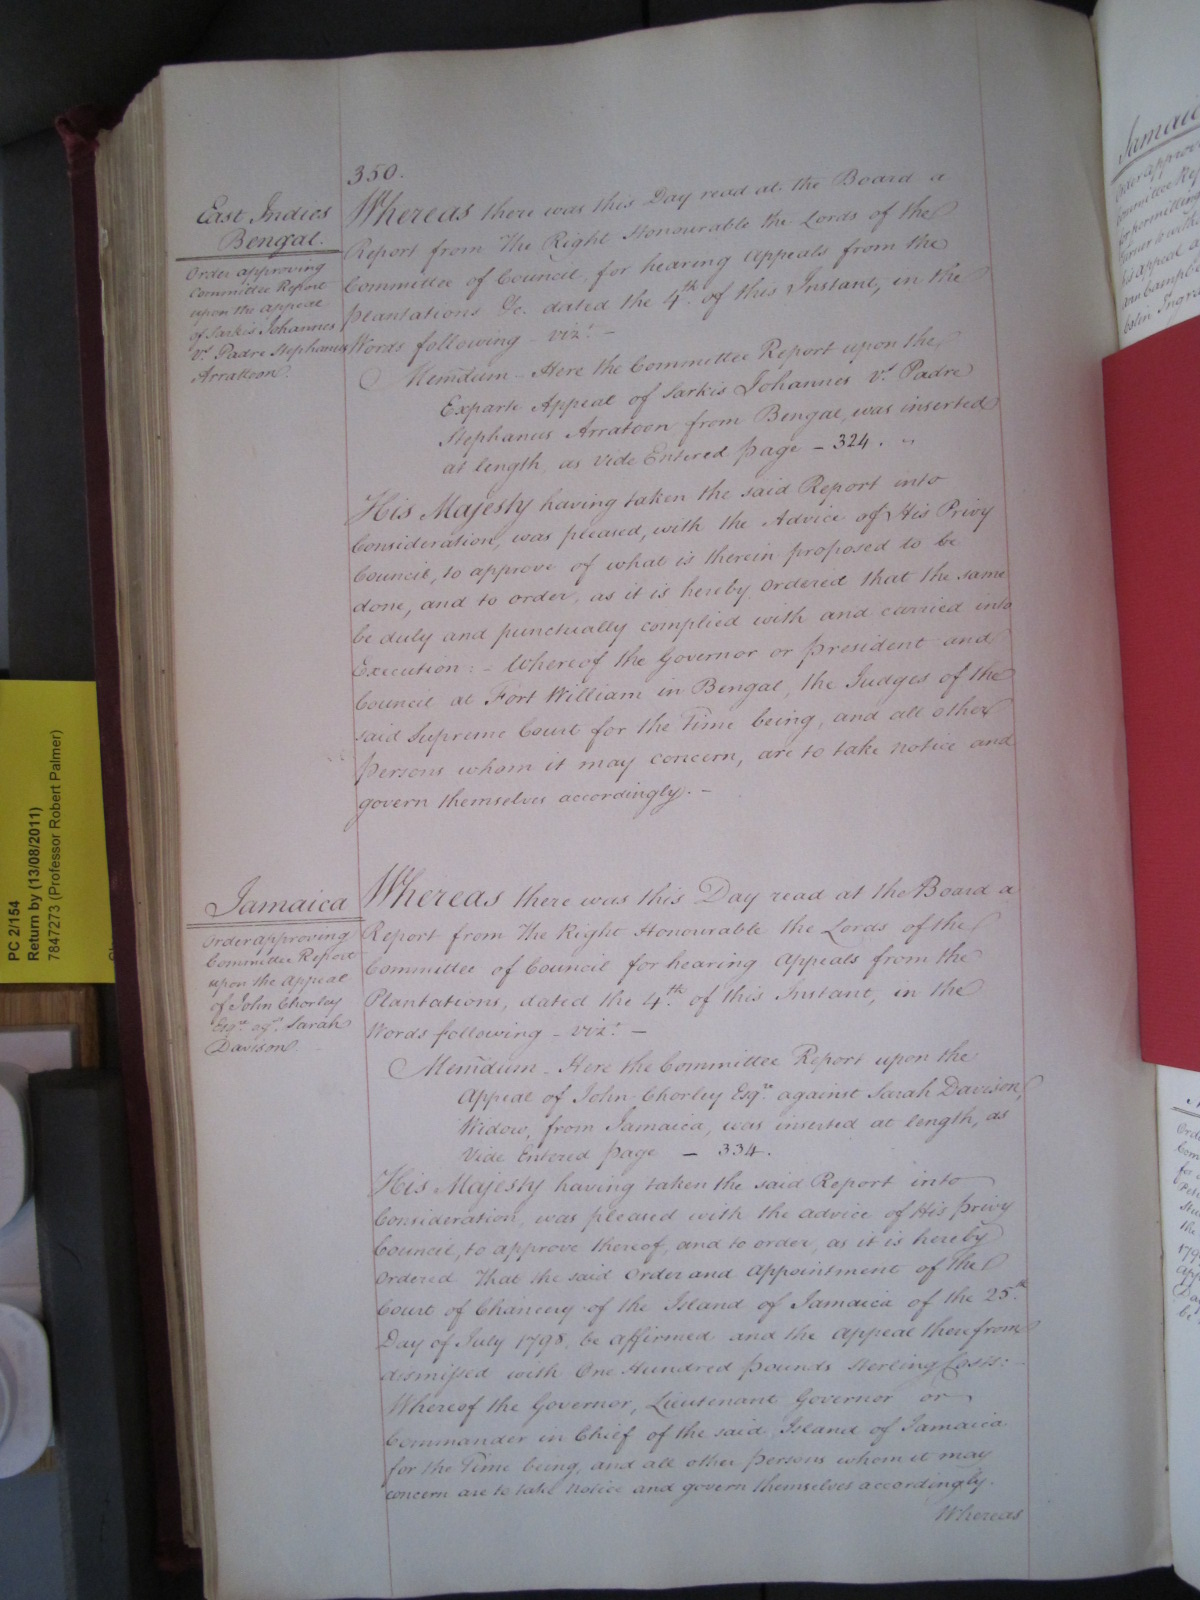 350.
East Indies
Bengal.
Order approving
Committee Report
upon the Appeal
of Sarkis Johannes
vs. Padre Stephanus
Arratoon.
Whereas there was this Day read at the Board a
Report from The Right Honourable the Lords of the
Committee of Council for hearing Appeals from the
Plantations &c. dated the 4th. of this Instant, in the
Words following - vizt. -
Memdum - Here the Committee Report upon the
Exparte Appeal of Sarkis Johannes vs. Padre
Stephanus Arratoon from Bengal, was inserted
at length, as Vide Entered page - 324. "
His Majesty having taken the said Report into
Consideration, was pleased, with the Advice of His Privy
Council, to approve of what is therein proposed to be
done, and to order, as it is hereby Ordered that the same
be duly and punctually complied with and carried into
Execution: - Whereof the Governor or President and
Council at Fort William in Bengal, the Judges of the
said Supreme Court for the Time being, and all other
Persons whom it may concern, are to take notice and
govern themselves accordingly. -
Jamaica
Order approving
Committee Report
upon the Appeal
of John Chorley
Esqre. agt. Sarah
Davison.
Whereas there was this Day read at the Board a
Report from The Right Honourable the Lords of the
Committee of Council for hearing Appeals from the
Plantations, dated the 4th. of this Instant, in the
Words following - vizt. -
Memdum - Here the Committee Report upon the
Appeal of John Chorley Esqre. against Sarah Davison,
Widow, from Jamaica, was inserted at length, as
Vide Entered page - 334.
His Majesty having taken the said Report into
Consideration, was pleased with the advice of His Privy
Council, to approve thereof, and to order, as it is hereby
Ordered That the said Order and Appointment of the
Court of Chancery of the Island of Jamaica of the 25th.
Day of July 1798, be affirmed and the Appeal therefrom
dismissed with One Hundred pounds sterling Costs: -
Whereof the Governor, Lieutenant Governor or
Commander in Chief of the said Island of Jamaica
for the Time being, and all other Persons whom it may
concern are to take notice and govern themselves accordingly.
Whereas
PC 2/154
Return by (13/08/2011)
7847273 (Professor Robert Palmer)